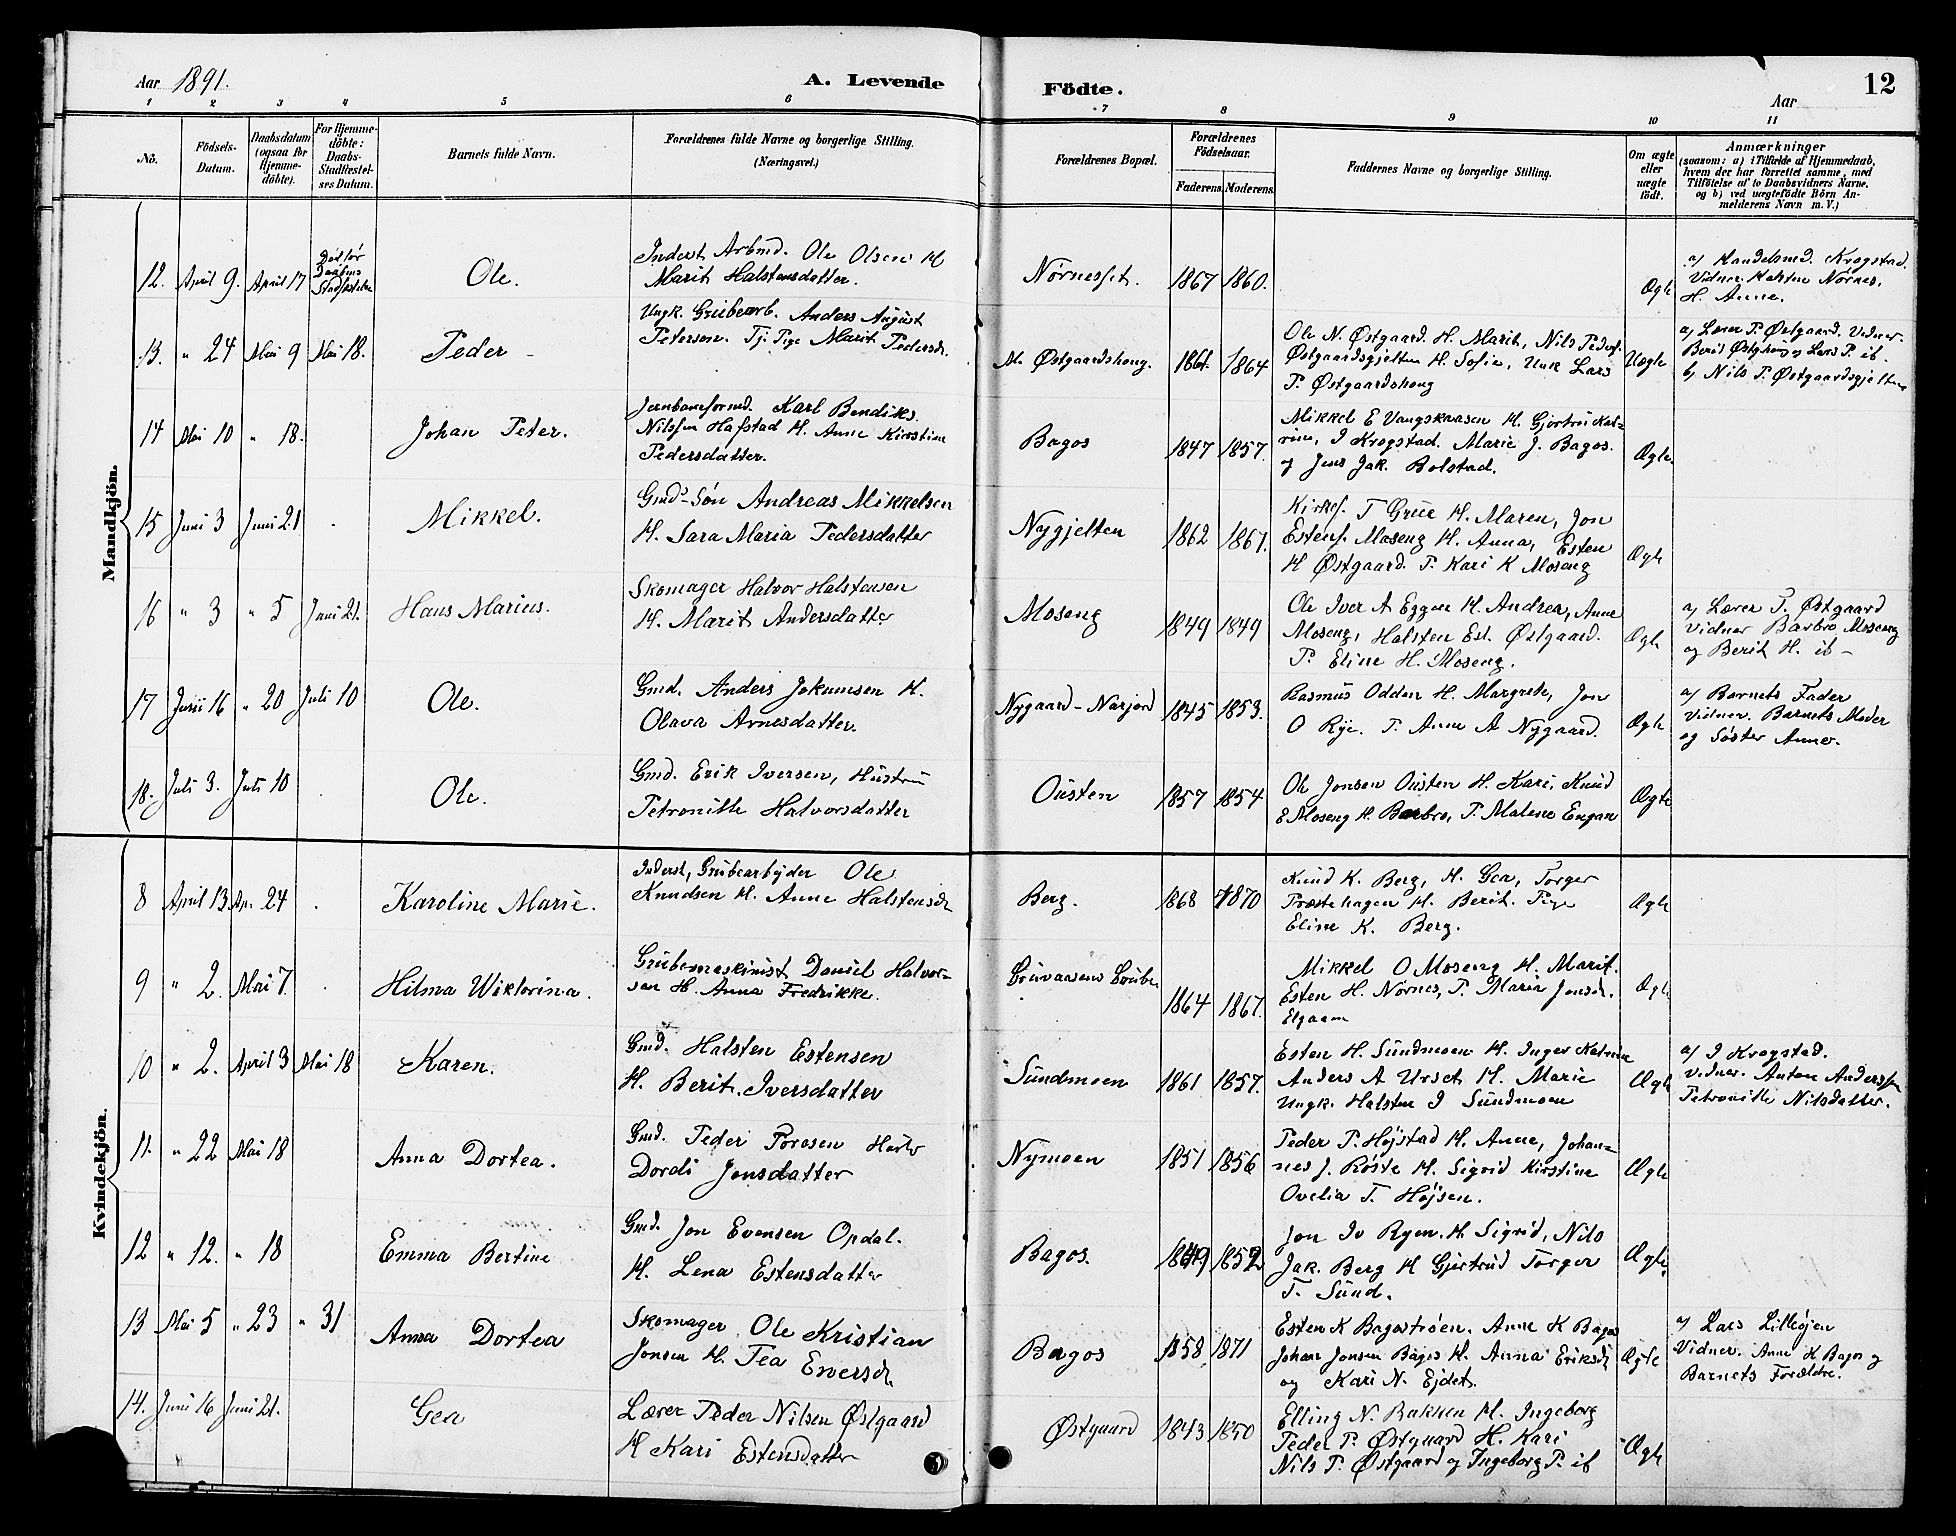 Aar 1891.
A. Levende Födte.
Aar
12
1 2 3 4 5 6 7 8 9 10 11
No.
Födsels-Datum.
Daabsdatum (ogsaa for Hjemme-döbte).
For Hjemme-döbte: Daabs-Stadfæstel-ses Datum.
Barnets fulde Navn.
Forældrenes fulde Navne og borgerlige Stilling. (Næringsvei.)
Forældrenes Bopæl.
Forældrenes Födselsaar.
Faderens. Moderens.
Faddernes Navne og borgerlige Stilling.
Om ægte eller uægte födt.
Anmærkninger
(saasom: a) i Tilfælde af Hjemmedaab,
hvem der har forrettet samme, med
Tilföielse af to Daabsvidners Navne,
og b) ved uægtefödte Börn An-
melderens Navn m. V.)
Mandkjön.
12. April 9. April 17 Död før Daabens Stadfæstelse
Ole.
Inderst Arbmd. Ole Olsen H
Marit Halstensdatter.
Nørnesset. 1867 1860.
Ægte
a) Handelsmd. Krogstad.
Vidner Halsten Nørnes,
H. Anne.
13. " 24 Mai 9 Mai 18.
Peder -
Ungk. Grubearb. Anders August
Peterson. Tj. Pige Marit Pedersdr.
M. Østgaardshaug. 1861. 1864
Ole N. Østgaard. H. Marit, Nils Peders.
Østgaardsgjelten H. Sofie, Unk Lars
P. Østgaardshaug
Uægte
a) Lærer P. Østgaard. Vidner
Berit Østghaug og Lars P. ib.
b) Nils P. Østgaardsgjelten
14 Mai 10 " 18.
Johan Peter.
Jernbaneformd. Karl Bendiks.
Nilssen Hafstad H. Anne Kirstine
Pedersdatter.
Bagos 1847 1857.
Mikkel E Vangskaasen H. Gjertrui Kat-
rine, J Krogstad. Marie J. Bagos.
og Jens Jak. Bolstad.
Ægte.
15 Juni 3 Juni 21 .
Mikkel.
Gmds-Søn Andreas Mikkelsen
H. Sara Maria Pedersdatter
Nygjelten 1862 1867.
Kirkes. T Grue H. Maren, Jon
Estens. Moseng H. Anna, Esten
H Østgaard P. Kari K Moseng
Ægte
16 " 3 " 5 Juni 21.
Hans Marius.
Skomager Halvor Halstensen
H. Marit Andersdatter
Moseng 1849 1849
Ole Iver A Eggen H. Andrea, Anne
Moseng, Halsten Est. Østgaard.
P. Eline H. Moseng.
Ægte
a) Lærer P. Østgaard
Vidner Barbro Moseng
og Berit H. ib -
17 Juni 16 " 20 Juli 10
Ole.
Gmd. Anders Jokumsen H.
Olava Arnesdatter.
Nygaard - Narjord 1845 1853.
Rasmus Odden H. Margrete, Jon
O Rye. P. Anne A Nygaard.
Ægte
a) Barnets Fader
Vidner. Barnets Moder
og Søster Anne.
18. Juli 3. Juli 10 .
Ole.
Gmd. Erik Iversen, Hustru
Petronille Halvorsdatter
Ousten 1857 1854
Ole Jonsen Ousten H. Kari, Knud
E Moseng H. Barbro, P. Malene Engan
Ægte
Kvindekjön.
8 April 13 Ap. 24 .
Karoline Marie.
Inderst, Grubearbejder Ole
Knudsen H. Anne Halstensdr
Berg. 1868 1870
Knud K. Berg, H. Gea, Torger
Præstehagen H. Berit. Pige
Eline K. Berg.
Ægte
9 " 2. Mai 7 .
Hilma Wiktorina.
Grubemaskinist Daniel Halvor-
sen H. Anna Fredrikke.
1864 1867.
Mikkel O Moseng H. Marit.
Esten H. Nørnes, P. Maria Jonsdr.
Elgaaen
Ægte
10 " 2. April 3 Mai 18
Karen.
Gmd. Halsten Estensen
H. Berit Iversdatter
Sundmoen 1861 1857.
Esten H. Sundmoen H. Inger Katrine
Anders A Urset H. Marie
Ungk. Halsten I Sundmoen
Ægte
a) I Krogstad.
Vidner. Anton Anderssen
Petronille Nilsdatter.
11. " 22 Mai 18
Anna Dortea.
Gmd. Peder Poresen
Dordi Jonsdatter
Nymoen 1851 1856
Peder P. Højstad H. Anne, Johan-
nes J. Røste H. Sigrid Kirstine
Ovelia T. Højsen.
Ægte
12 " 12. " 18
Emma Bertine
Gmd. Jon Evensen Opdal.
H. Lena Estensdatter
Bagos. 1849 1852
Jon Iv Ryen. H. Sigrid, Nils
Jak. Berg H Gjertrud Torger
T. Sund.
Ægte.
13 Mai 5 " 23 " 31
Anna Dortea
Skomager Ole Kristian
Jonsen H. Tea Eversdr.
Bagos 1858. 1871
Esten K Bagostrøen. Anne K Bagos
Johan Jonsen Bagos H. Anna Eriksdr
og Kari N. Ejdet.
Ægte
a) Lars Lilleøjen
Vidner. Anne K Bagos og
Barnets Forældre.
14. Juni 16 Juni 21.
Gea
Lærer Peder Nilsen Østgaard
H Kari Estensdatter
Østgaard 1843 1850
Elling N. Bakken H. Ingeborg
Peder P. Østgaard H. Kari
Nils P. Østgaard og Ingeborg P. ib
Ægte